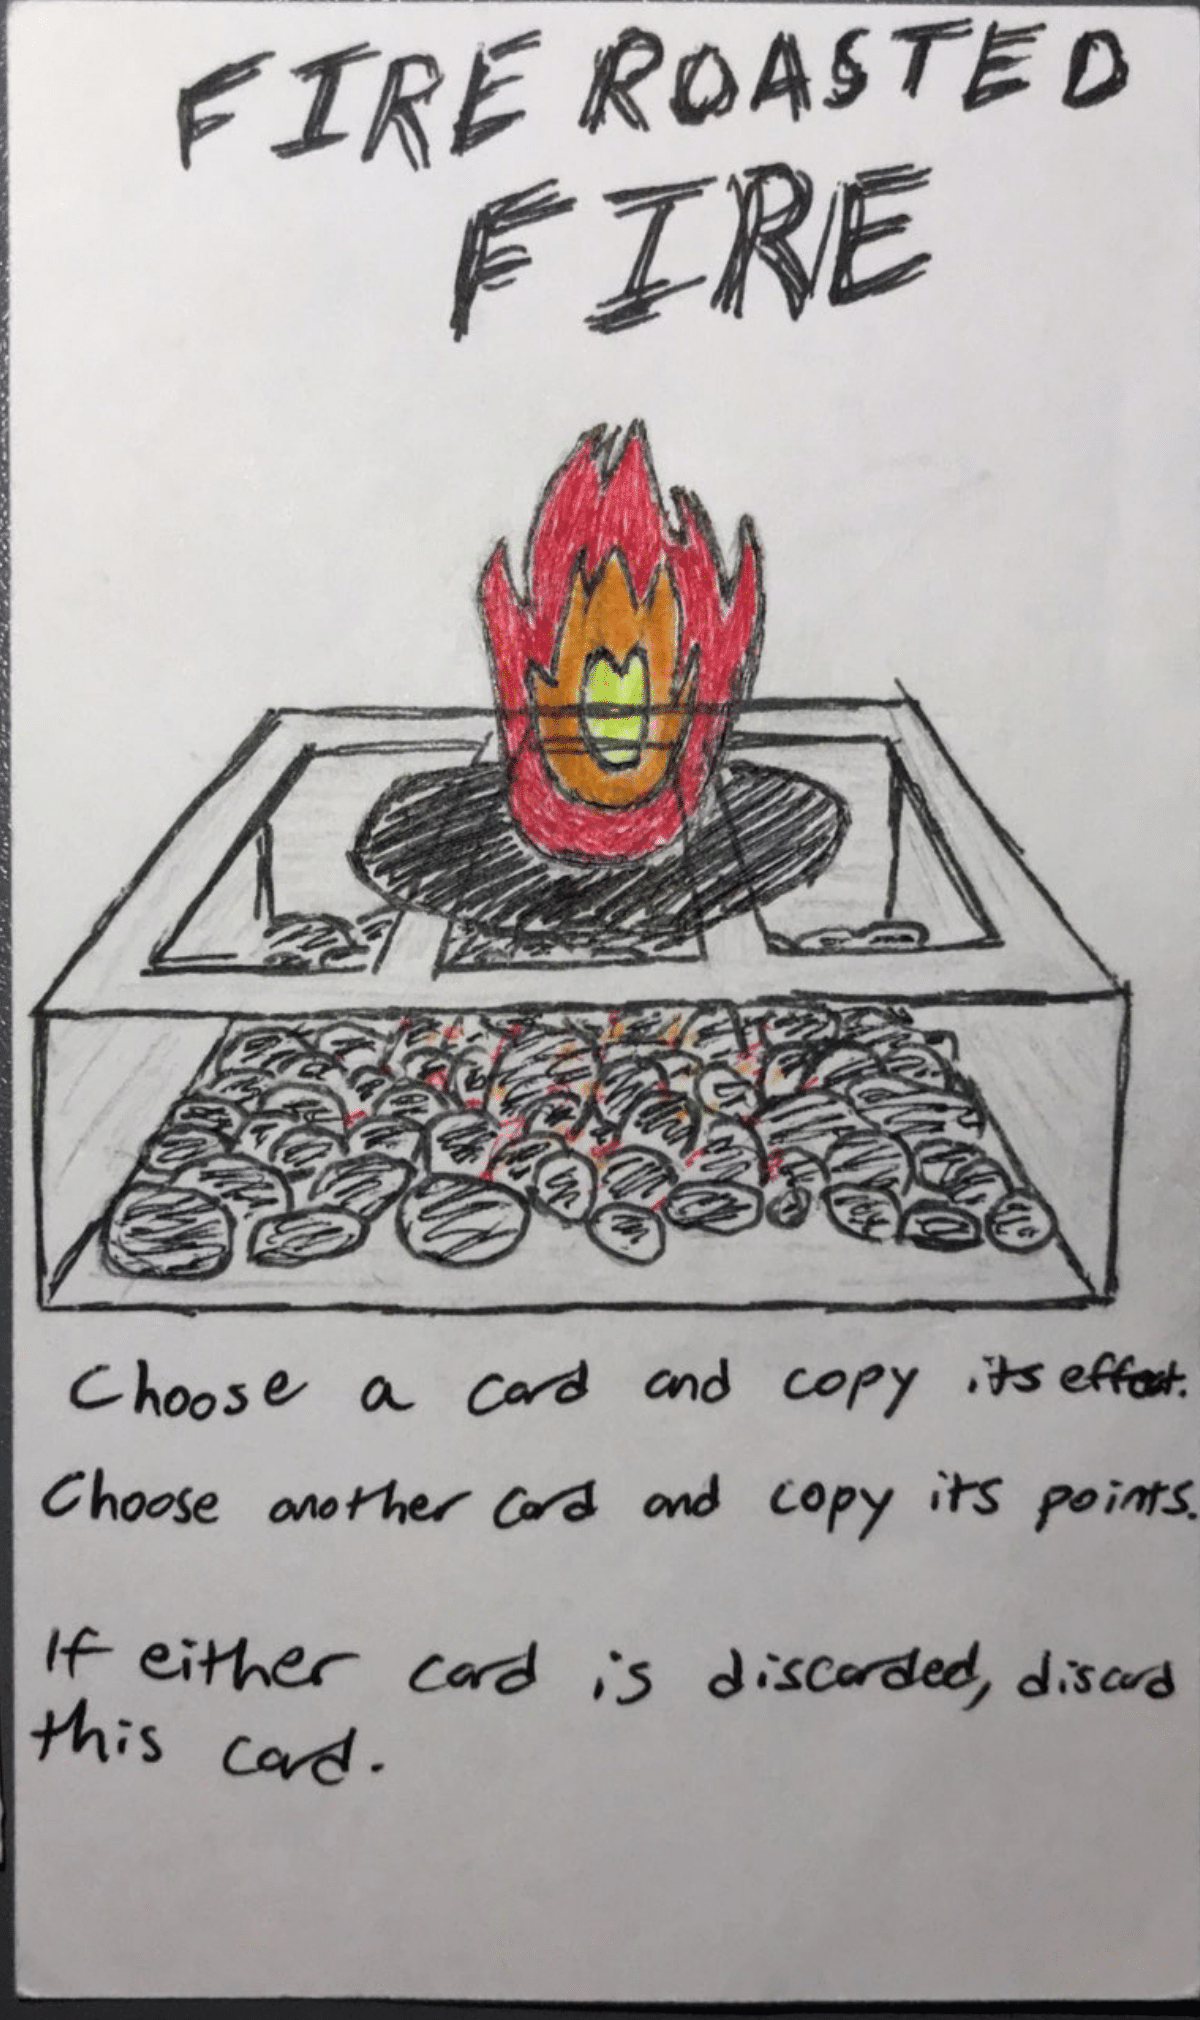 FIRE ROASTED
FIRE
Choose a card and copy its effect.
Choose another card and copy its points.
If either card is discarded, discard
this card.